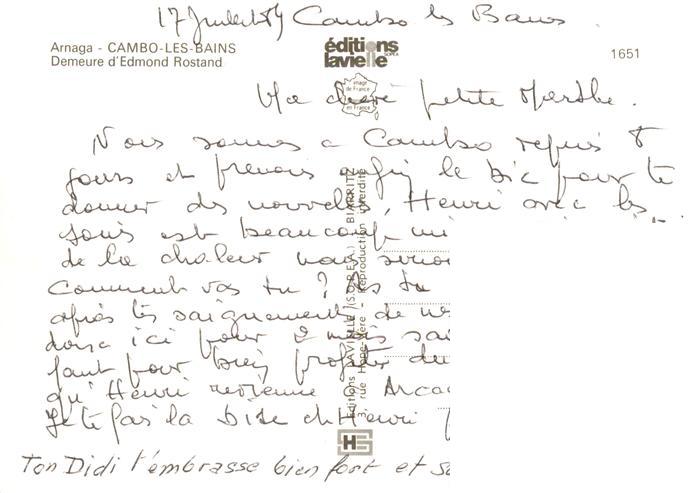 17 Juillet 84 Cambo les Bains
Arnaga - CAMBO-LES-BAINS
Demeure d'Edmond Rostand
éditions
lavielle
SOPEA
1651
image
de France
en France
Ma chère petite Marthe.
Nous sommes a Cambo depuis 8
jours et prenons le bic pour te
donner des nouvelles, Henri avec les
soins est beaucoup mi
de la chaleur nous
Comment vas tu ? tu
après tes saignements de
donc ici pour 2 mois
faut pour bien profiter du
qu'Henri revienne Arca
Je te fais la bise et Henri
Ton Didi t'embrasse bien fort et
Editions LAVIELLE (S.O.P.E.A.) BIARRITZ
rue Hope-Vère - Reproduction interdite
HS